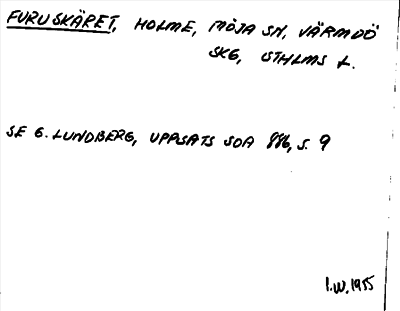 FURUSKÄRET, HOLME, MÖJA SN, VÄRMDÖ
SKG, STHLMS L.
SE G. LUNDBERG, UPPSATS SOA 886, S. 9
I.W. 1955